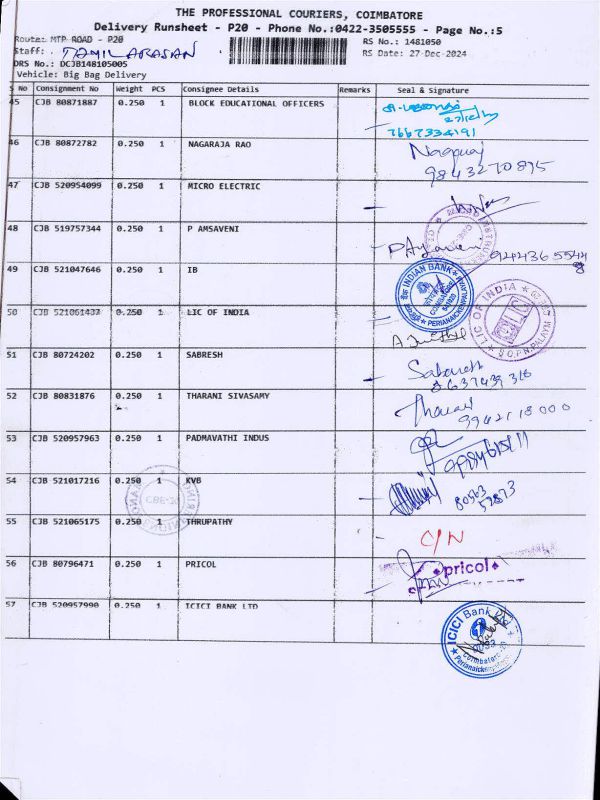 THE PROFESSIONAL COURIERS, COIMBATORE
Delivery Runsheet - P20 - Phone No.:0422-3505555 - Page No.:5
Route: MTP ROAD - P20
RS No.: 1481050
Staff: TAMIL ARASAN
RS Date: 27-Dec-2024
DRS No.: DCJB148105005
Vehicle: Big Bag Delivery
S No Consignment No Weight PCS Consignee Details Remarks Seal & Signature
45 CJB 80871887 0.250 1 BLOCK EDUCATIONAL OFFICERS
7667334191
46 CJB 80872782 0.250 1 NAGARAJA RAO Nagaraj
9843270895
47 CJB 520954099 0.250 1 MICRO ELECTRIC
48 CJB 519757344 0.250 1 P AMSAVENI
49 CJB 521047646 0.250 1 IB INDIAN BANK
50 CJB 521061437 0.250 1 LIC OF INDIA LIC OF INDIA
51 CJB 80724202 0.250 1 SABRESH
52 CJB 80831876 0.250 1 THARANI SIVASAMY Tharani
9942118000
53 CJB 520957963 0.250 1 PADMAVATHI INDUS
54 CJB 521017216 0.250 1 KVB
80563
52873
55 CJB 521065175 0.250 1 THRUPATHY C/N
56 CJB 80796471 0.250 1 PRICOL pricol
57 CJB 520957990 0.250 1 ICICI BANK LTD ICICI Bank Ltd